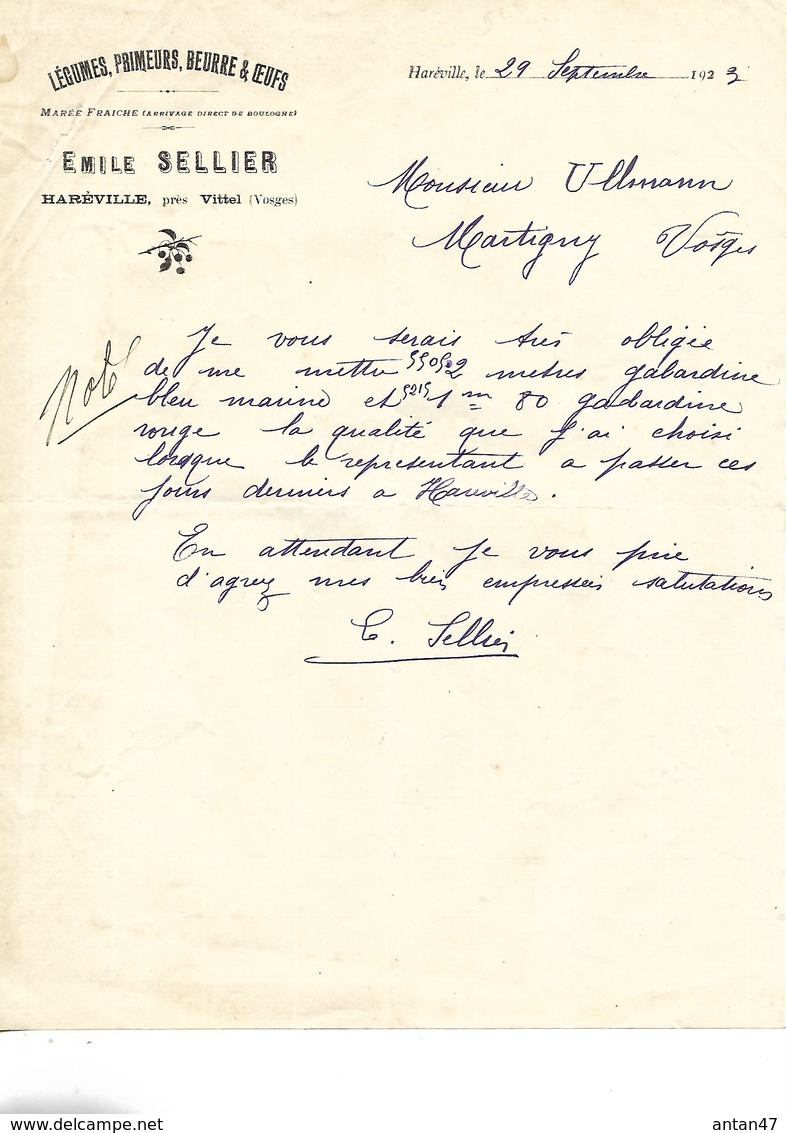 LÉGUMES, PRIMEURS, BEURRE & ŒUFS
MARÉE FRAICHE (ARRIVAGE DIRECT DE BOULOGNE)
EMILE SELLIER
HARÉVILLE, près Vittel (Vosges)
Haréville, le 29 Septembre 1923
Monsieur Ullmann
Martigny Vosges
Noté
Je vous serais très obligée
de me mettre 2 metres gabardine
bleu marine et 1 m 80 gabardine
rouge la qualité que j'ai choisi
lorsque le representant a passer ces
jours derniers a Hareville.
En attendant je vous prie
d'agrez mes bien empressées salutations
E. Sellier
delcampe.net
antan47